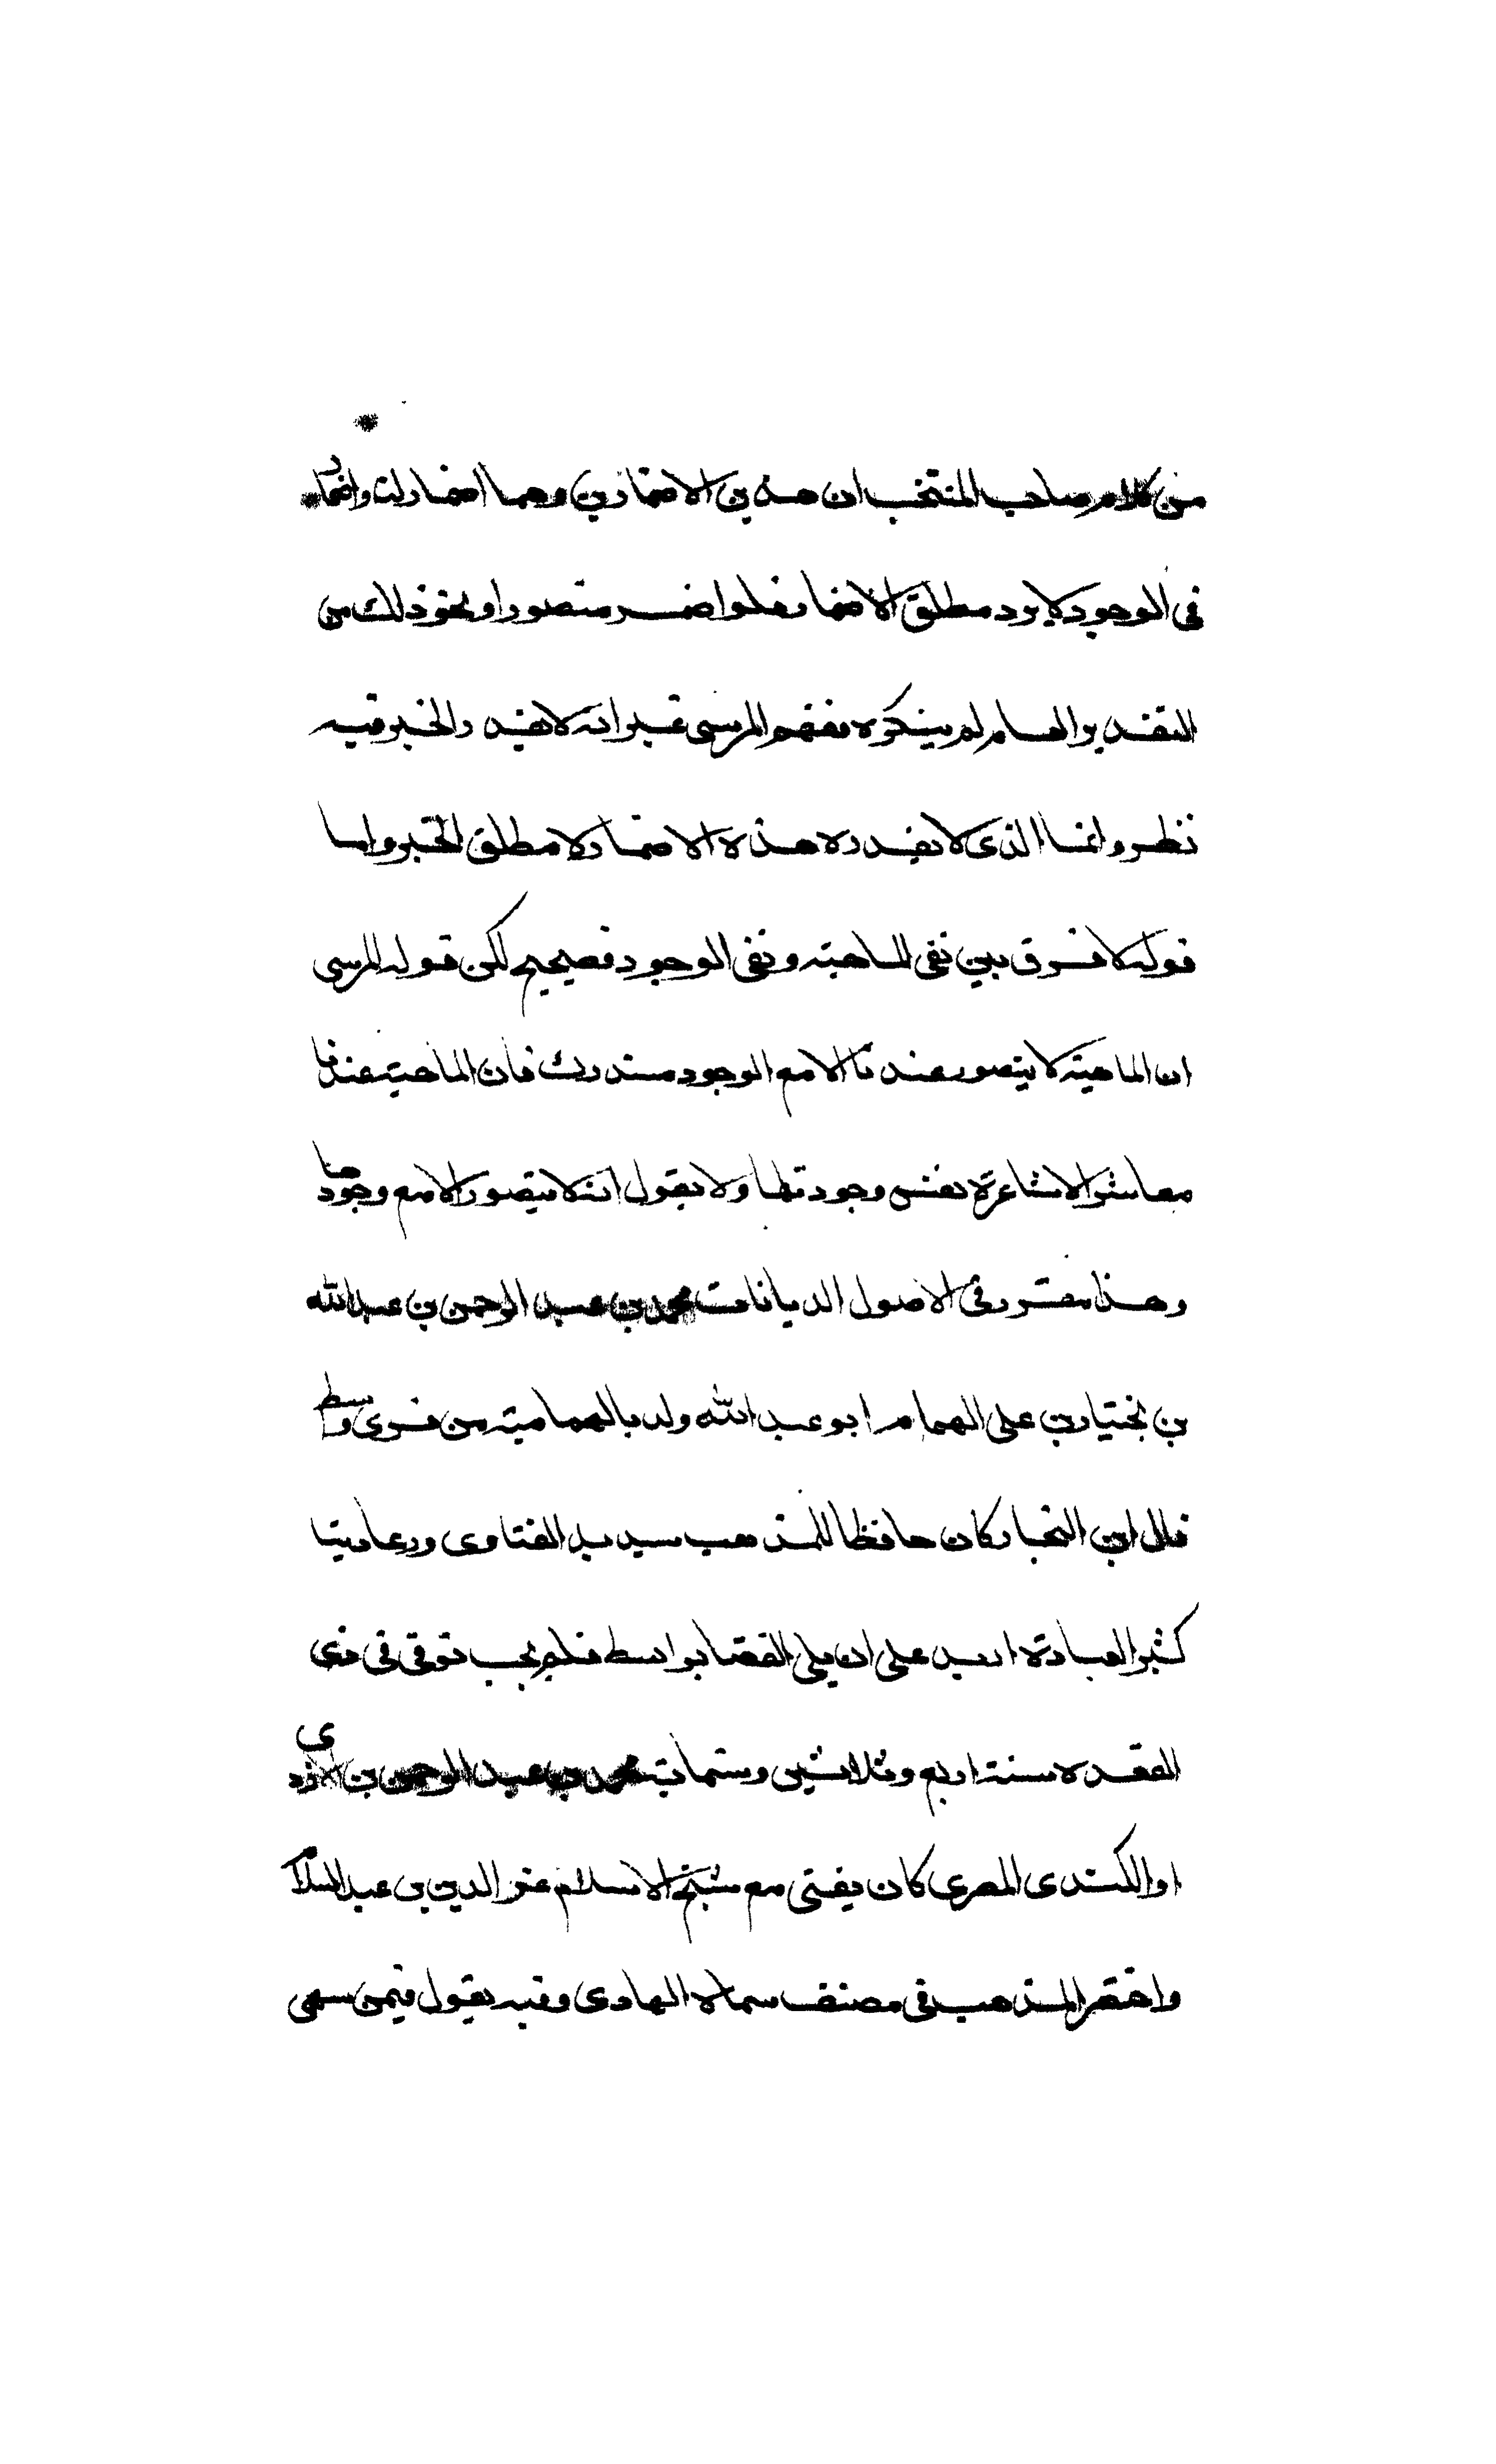 من كلام صاحب المنتخب ان هذين الاضمارين وهما اضمار لنا واضمار
في الوجود لا يرد مطلق الاضمار فلو اضمر متصور او نحو ذلك من
التقدير العام لم ينكره ففهم المرسي غير انه لا يقدر الخبر وفيه
نظر وانما الذي لا يقدره هذه الاضمار لا مطلق الخبر واما
قوله لا فرق بين نفي الماهية ونفي الوجود فصحيح لكن قوله المرسي
ان الماهية لا يتصور عندنا الا مع الوجود مستدرك فان الماهية عندنا
معاشر الاشاعرة نفس وجودها ولا يقول انه لا يتصور الا مع وجودها
وهذا مقرر في الاصول الديانات محمد بن عبد الرحمن بن عبد الله
بن بختيار بن علي الهمام ابو عبد الله ولد بالهمامية من قرى واسط
قال ابن النجار كان حافظا للمذهب سديد الفتاوى ورعا دينا
كثير العبادة اريد على ان يلي القضا بواسط فلم يجب توفي في ذي
القعدة سنة اربع وثلاثين وستماية محمد بن عبد الرحمن بن الازدي
او الكندي المصري كان يفتي مع شيخ الاسلام عز الدين بن عبد السلام
واختصر المذهب في مصنف سماه الهادي وفيه يقول فيمن سهى